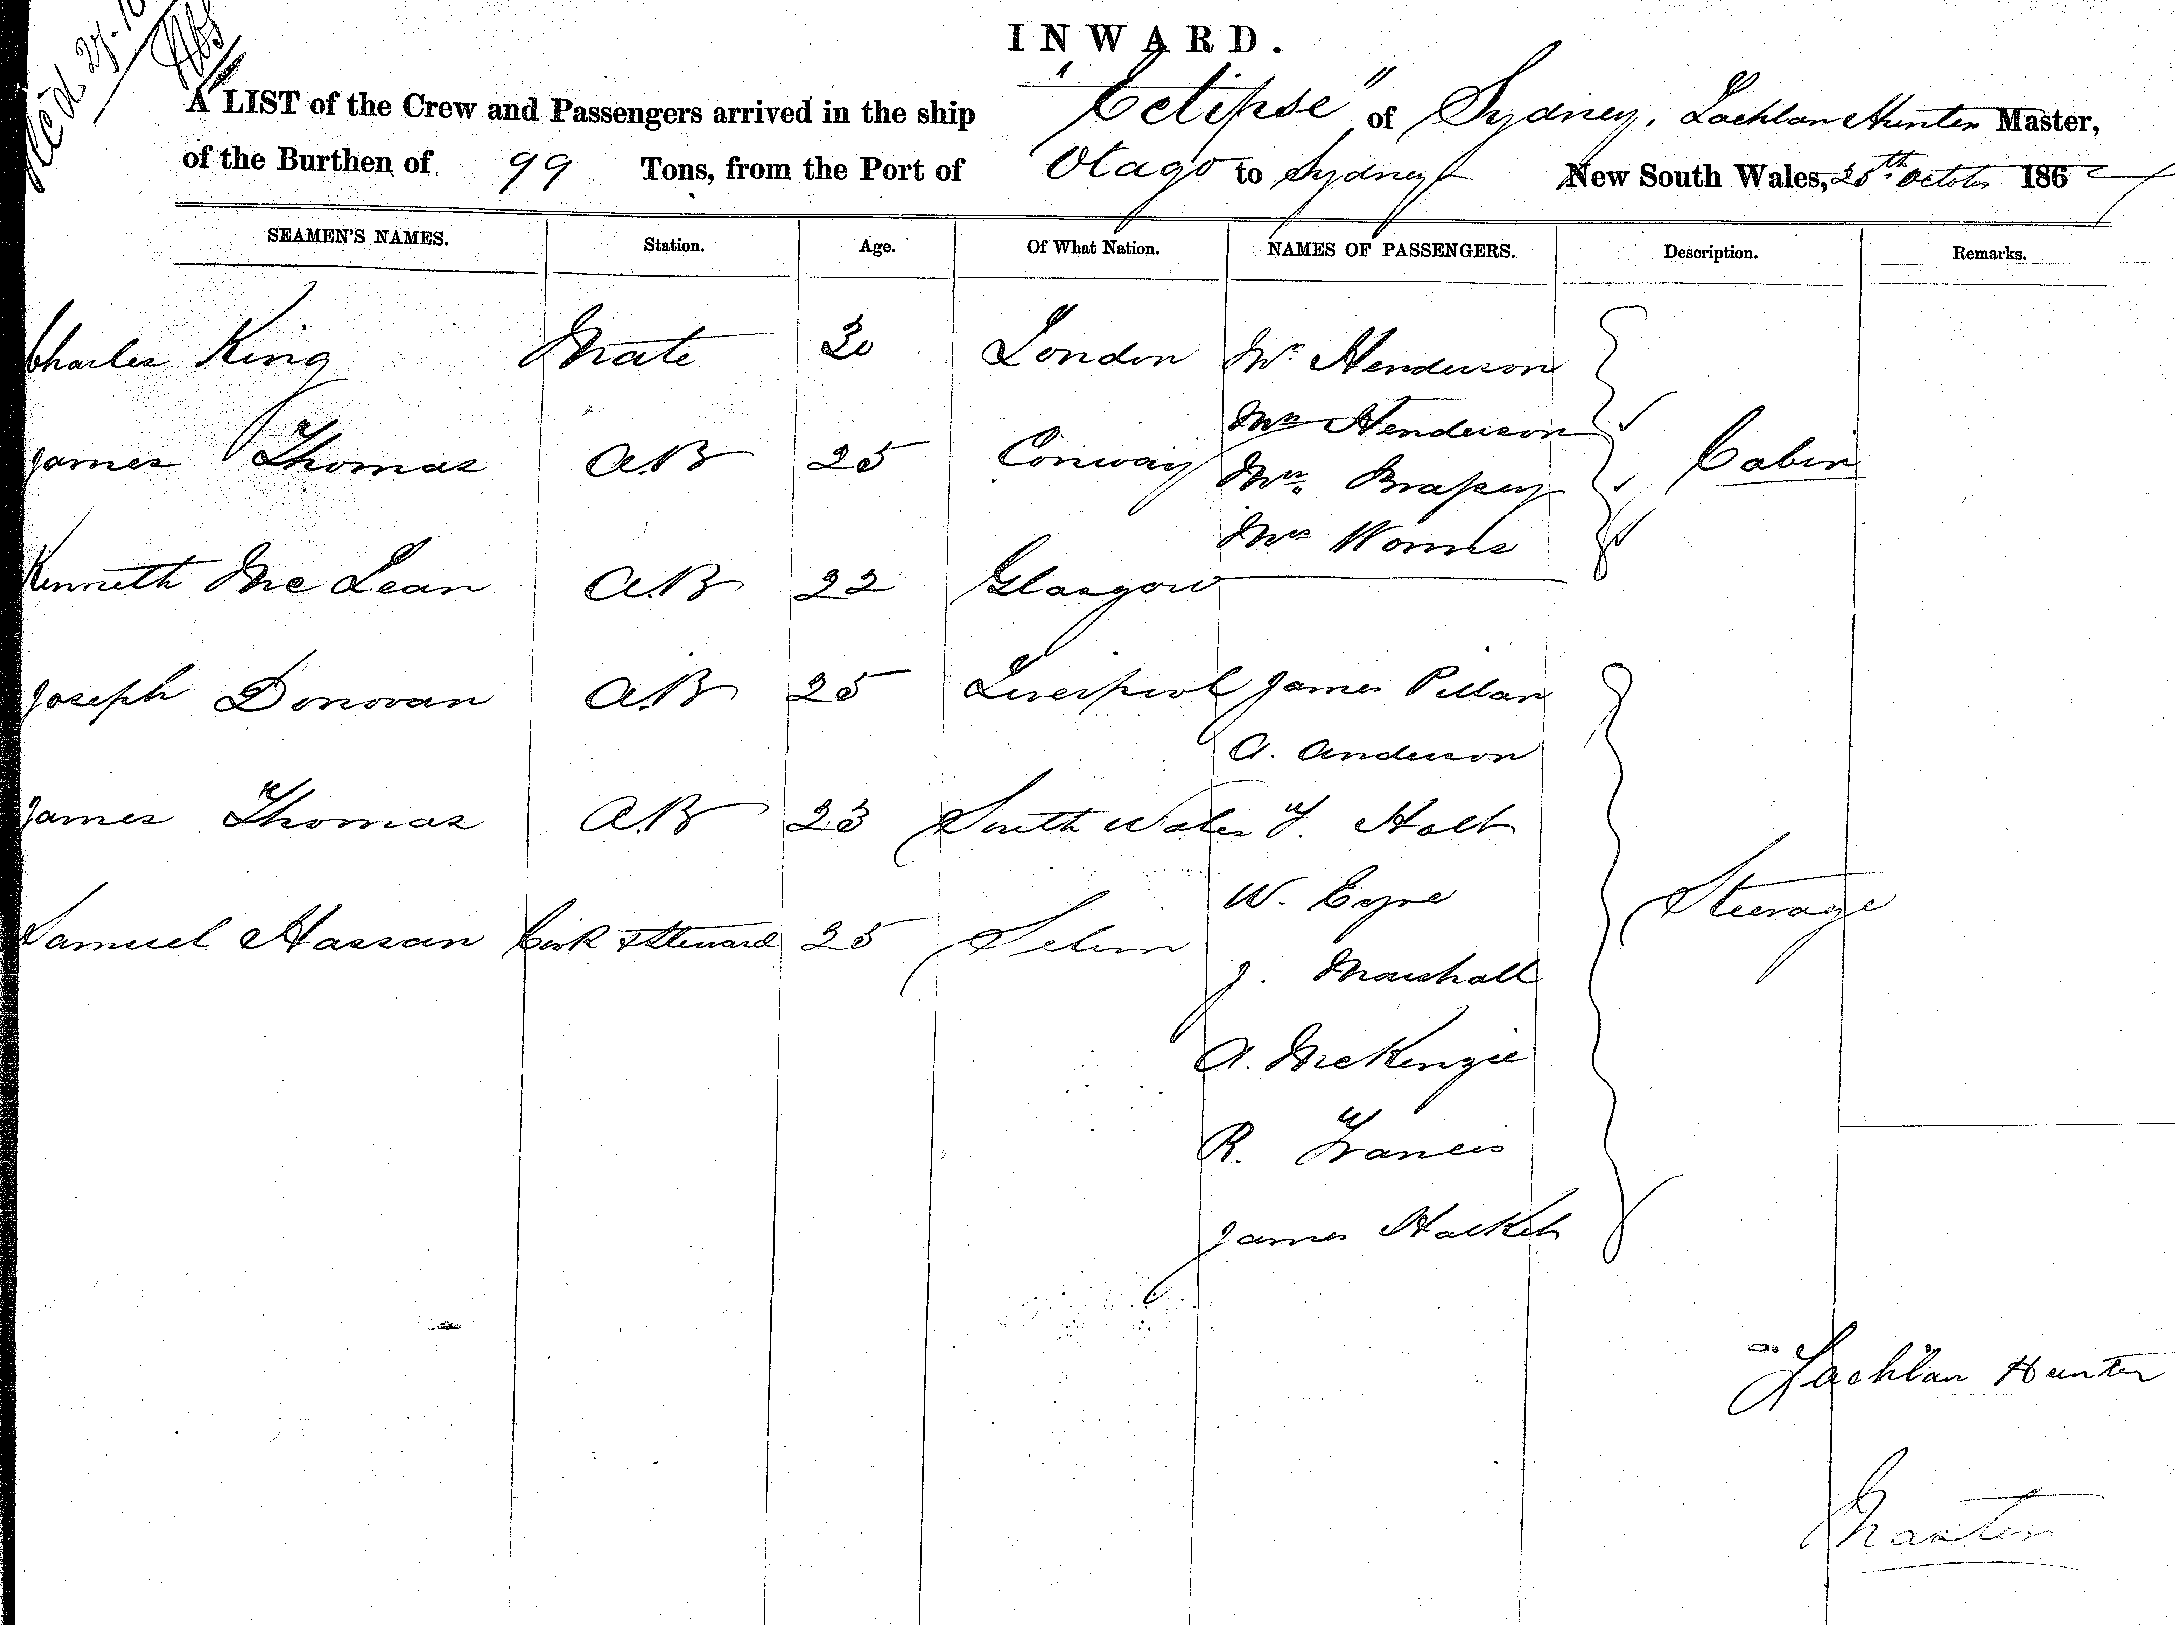 Rec'd 27.10
INWARD.
A LIST of the Crew and Passengers arrived in the ship "Eclipse" of Sydney, Lachlan Hunter Master,
of the Burthen of 99 Tons, from the Port of Otago to Sydney New South Wales, 25th October 186
SEAMEN'S NAMES. Station. Age. Of What Nation. NAMES OF PASSENGERS. Description. Remarks.
Charles King Mate 30 London Mr Henderson
Mrs Henderson
James Thomas AB 25 Conway Cabin
Mrs Brassey
Mrs Worms
Kenneth McLean AB 22 Glasgow
Joseph Donovan AB 25 Liverpool James Pillar
A. Anderson
James Thomas AB 23 South Wales F. Holt
W. Eyre Steerage
Samuel Hassan Cook & Steward 25
J. Marshall
A. McKenzie
R. Francis
James Hackett
Lachlan Hunter
Master